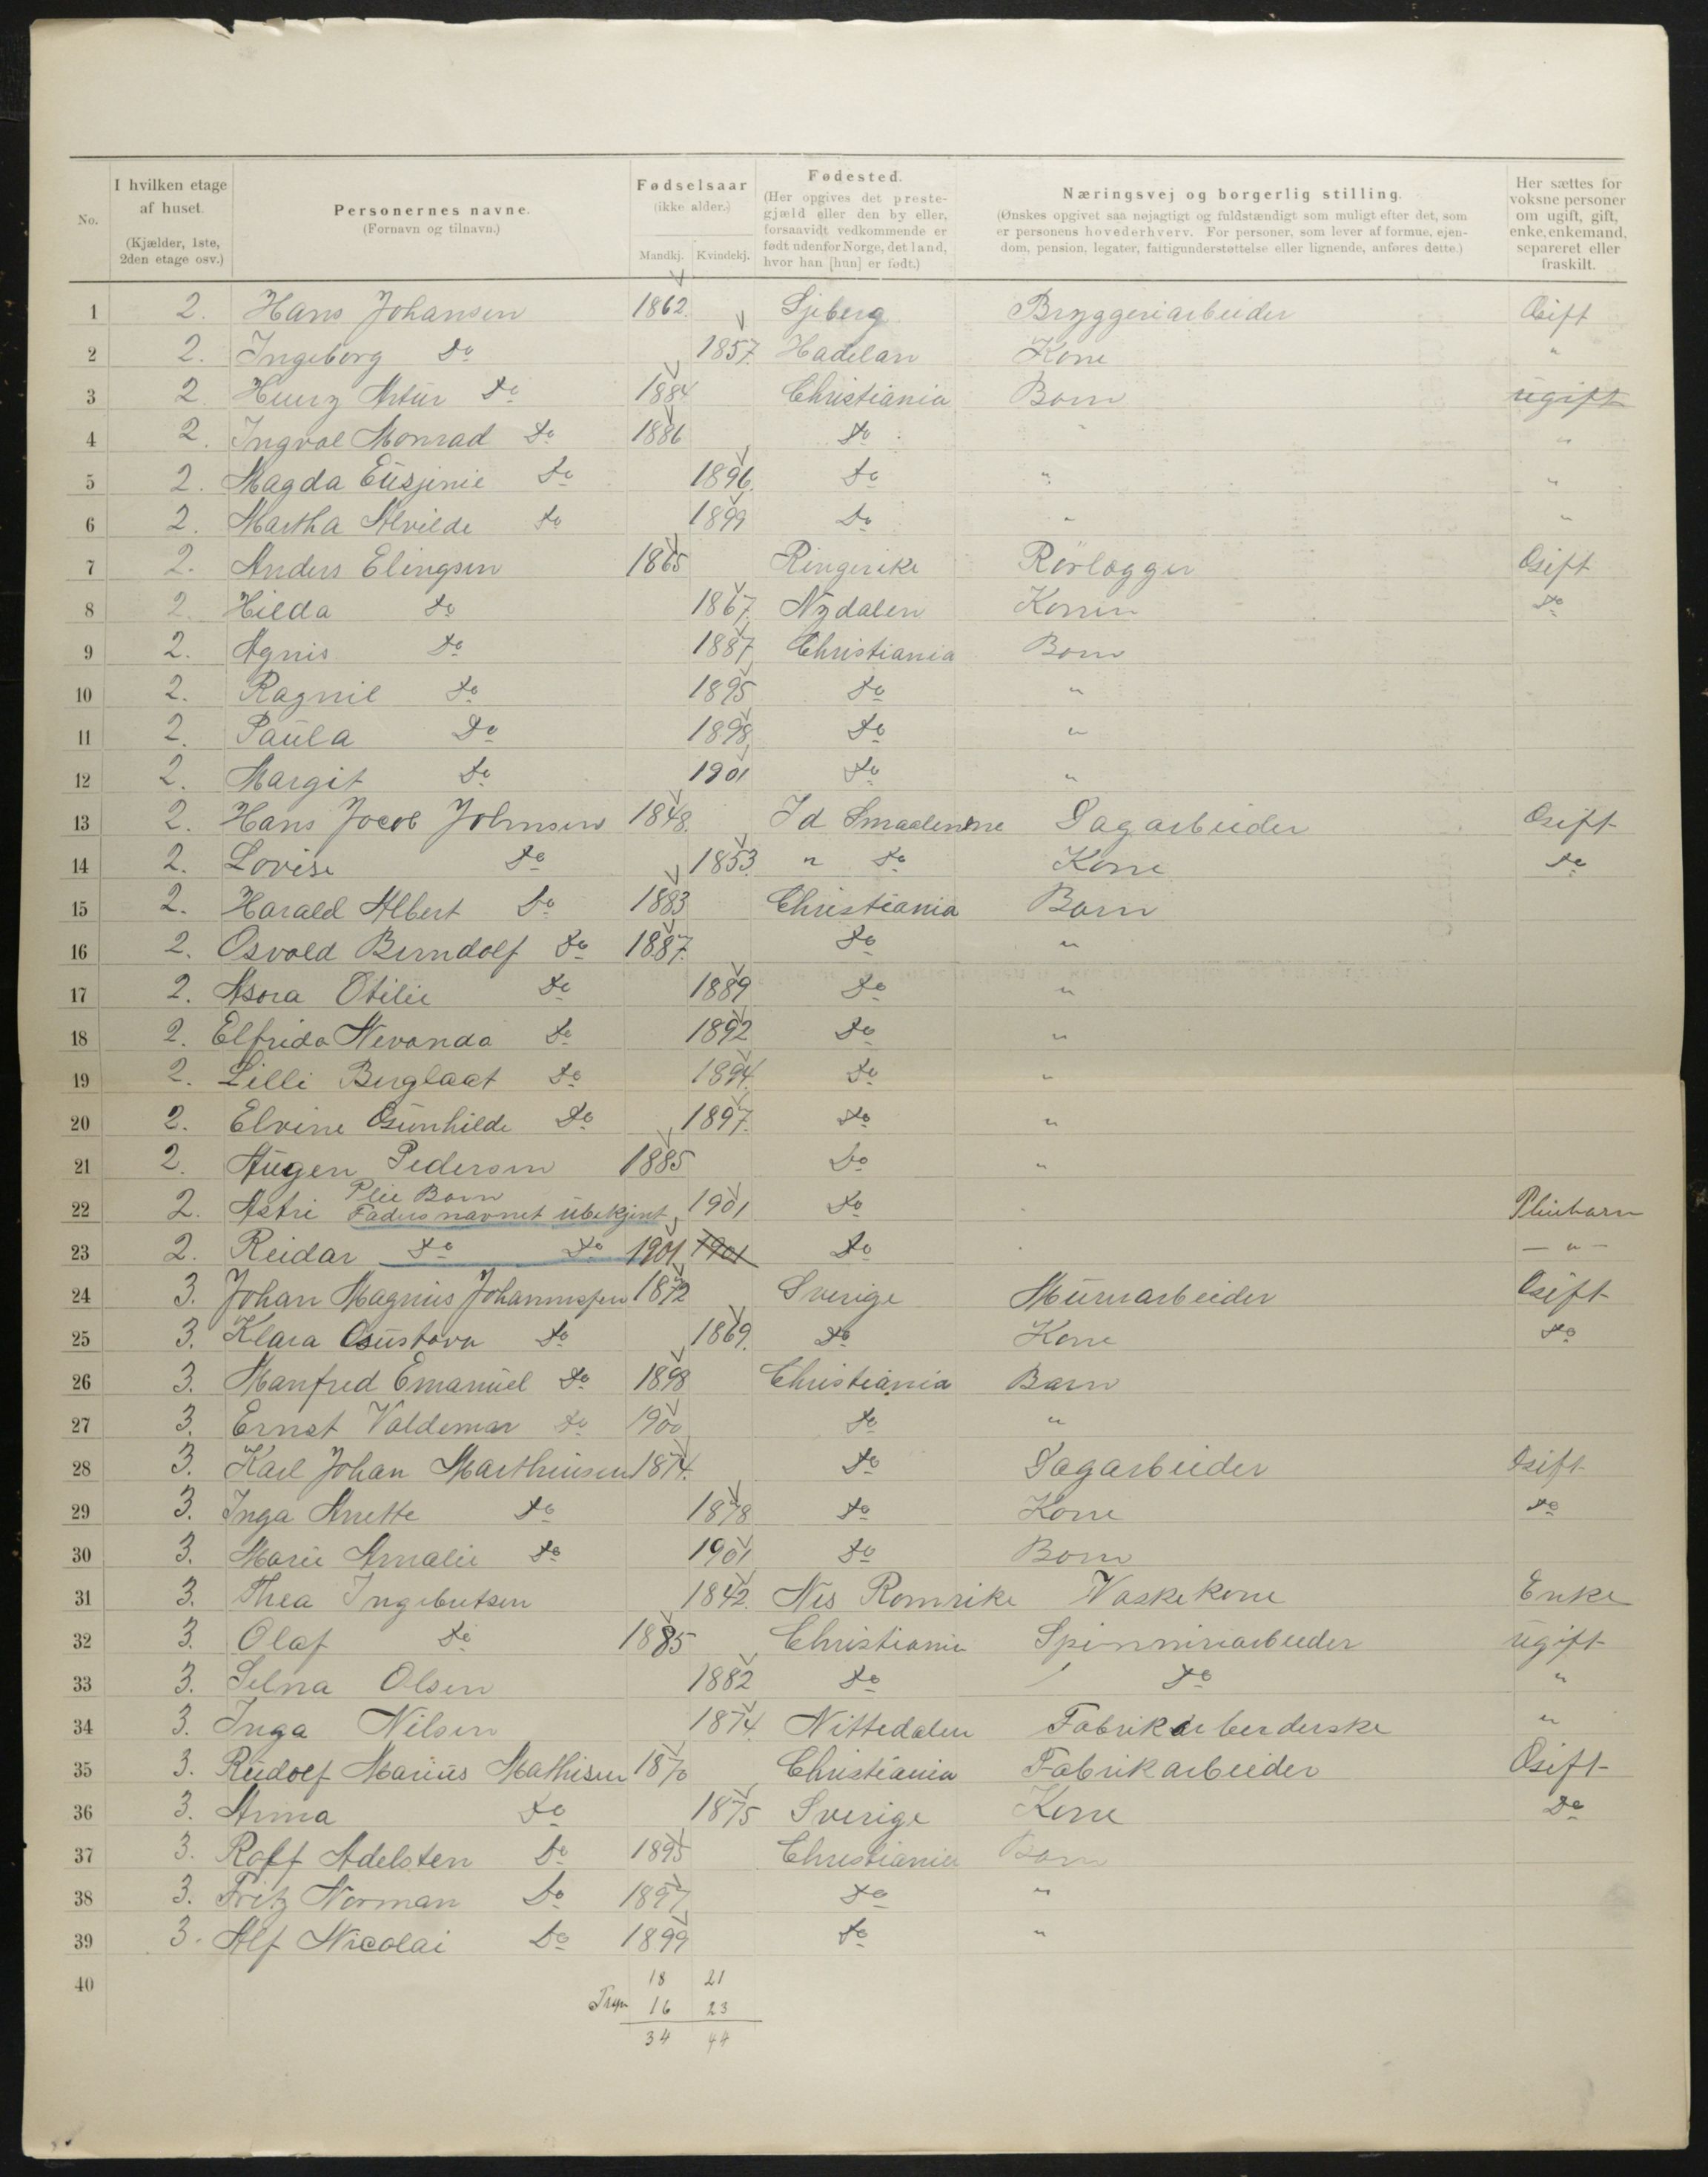 No.
I hvilken etage
af huset.
(Kjælder, 1ste,
2den etage osv.)
Personernes navne.
(Fornavn og tilnavn.)
Fødselsaar
(ikke alder.)
Mandkj. Kvindekj.
Fødested.
(Her opgives det preste-
gjæld eller den by eller,
forsaavidt vedkommende er
født udenfor Norge, det land,
hvor han [hun] er født.)
Næringsvej og borgerlig stilling.
(Ønskes opgivet saa nøjagtigt og fuldstændigt som muligt efter det, som
er personens hovederhverv. For personer, som lever af formue, ejen-
dom, pension, legater, fattigunderstøttelse eller lignende, anføres dette.)
Her sættes for
voksne personer
om ugift, gift,
enke, enkemand,
separeret eller
fraskilt.
1 2. Hans Johansen 1862. Sjeberg Bryggeriarbeider Gift
2 2. Ingeborg Do 1857. Hadelan Kone "
3 2 Henry Artur Do 1884 Christiania Born ugift
4 2. Ingval Monrad Do 1886 Do " "
5 2. Magda Eusjinie Do 1896. Do " "
6 2. Martha Alvilde Do 1899 Do " "
7 2. Anders Elingsen 1865 Ringerike Rörlægger Gift
8 2 Hilda Do 1867. Nydalen Konen Do
9 2. Agnis Do 1887 Christiania Born
10 2. Ragnil Do 1895 Do "
11 2. Paula Do 1898 Do "
12 2. Margit Do 1901 Do "
13 2. Hans Jocob Johnsen 1848. Id Smaalenene Sagarbeider Gift
14 2. Lovise Do 1853. " Do Kone Do
15 2. Harald Albert Do 1883 Christiania Barn
16 2. Osvald Berndolf Do 1887. Do "
17 2. Asora Otilie Do 1889 Do "
18 2. Elfrida Nevanda Do 1892 Do "
19 2. Lilli Berglaat Do 1894. Do "
20 2. Elvine Gunhilde Do 1897. Do "
21 2. Augen Pedersen 1885 Do "
22 2. Astri Plei Barn Faders navnet übekjent 1901 Do Pleiebarn
23 2. Reidar Do Do 1901 1901 Do — " —
24 3. Johan Magnus Johannesen 1872 Sverige Murarbeider Gift
25 3. Klara Gustava Do 1869. Do Kone Do
26 3. Manfred Emanuel Do 1898 Christiania Barn
27 3. Ernst Valdemar Do 1900 Do "
28 3. Karl Johan Marthinsen 1874. Do Sagarbeider Gift
29 3. Inga Anette Do 1878 Do Kone Do
30 3. Marie Amalie Do 1901 Do Born
31 3. Thea Ingebretsen 1842. Nes Romrike Vaskekone Enke
32 3. Olaf Do 1885 Christiania Spinneriarbeider ugift
33 3. Selna Olsen 1882 Do Do "
34 3. Inga Nilsen 1874. Nittedalen Fabrikarbeiderske "
35 3. Rudolf Marius Mathisen 1870 Christiania Fabrikarbeider Gift
36 3. Anna Do 1875 Sverige Kone Do
37 3. Rolf Adelsten Do 1895 Christiania Barn
38 3. Fritz Norman Do 1897 Do "
39 3. Alf Nicolai Do 1899 Do "
40 18 21
16 23
34 44